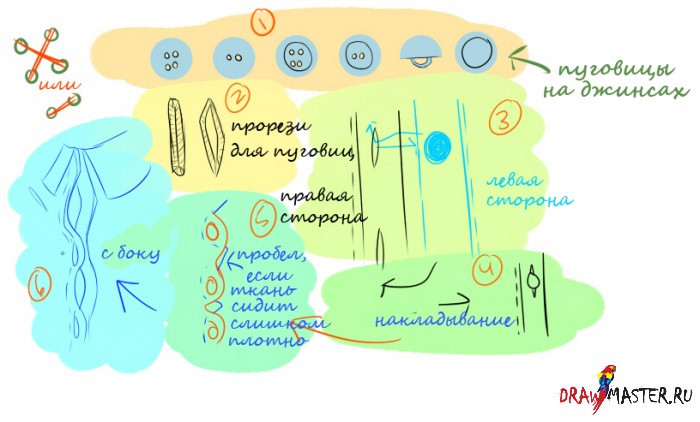 1
или
пуговицы
на джинсах
2
прорези
для пуговиц
3
правая
сторона
левая
сторона
4
накладывание
5
пробел,
если
ткань
сидит
слишком
плотно
6
с боку
DRAWMASTER.RU